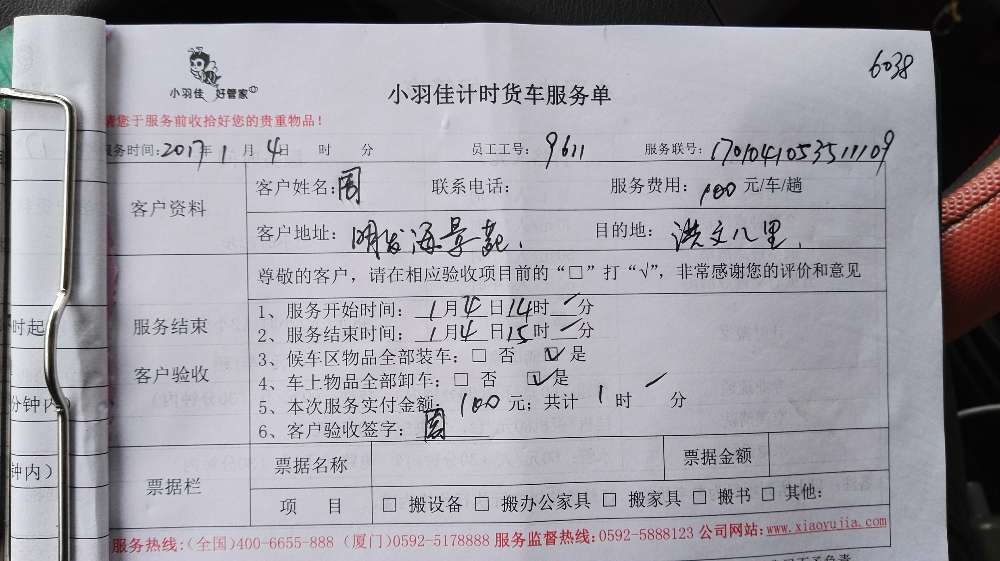 6038
小羽佳 好管家
小羽佳计时货车服务单
请您于服务前收拾好您的贵重物品!
服务时间:2017年1月4日 时 分 员工工号:9611 服务联号:17010410535111109
客户资料
客户姓名:周 联系电话: 服务费用:100元/车/趟
客户地址:明发海景苑. 目的地:洪文八里.
尊敬的客户,请在相应验收项目前的“□”打“√”,非常感谢您的评价和意见
服务结束
客户验收
1、服务开始时间:1月4日14时 分
2、服务结束时间:1月4日15时 分
3、候车区物品全部装车:□ 否 ☑是
4、车上物品全部卸车:□ 否 ☑是
5、本次服务实付金额:100元;共计 1时 分
6、客户验收签字:周
票据栏
票据名称 票据金额
项 目 □ 搬设备 □ 搬办公家具 □ 搬家具 □ 搬书 □ 其他:
服务热线:(全国)400-6655-888 (厦门)0592-5178888 服务监督热线:0592-5888123 公司网站:www.xiaoyujia.com
时起
分钟内)
钟内)